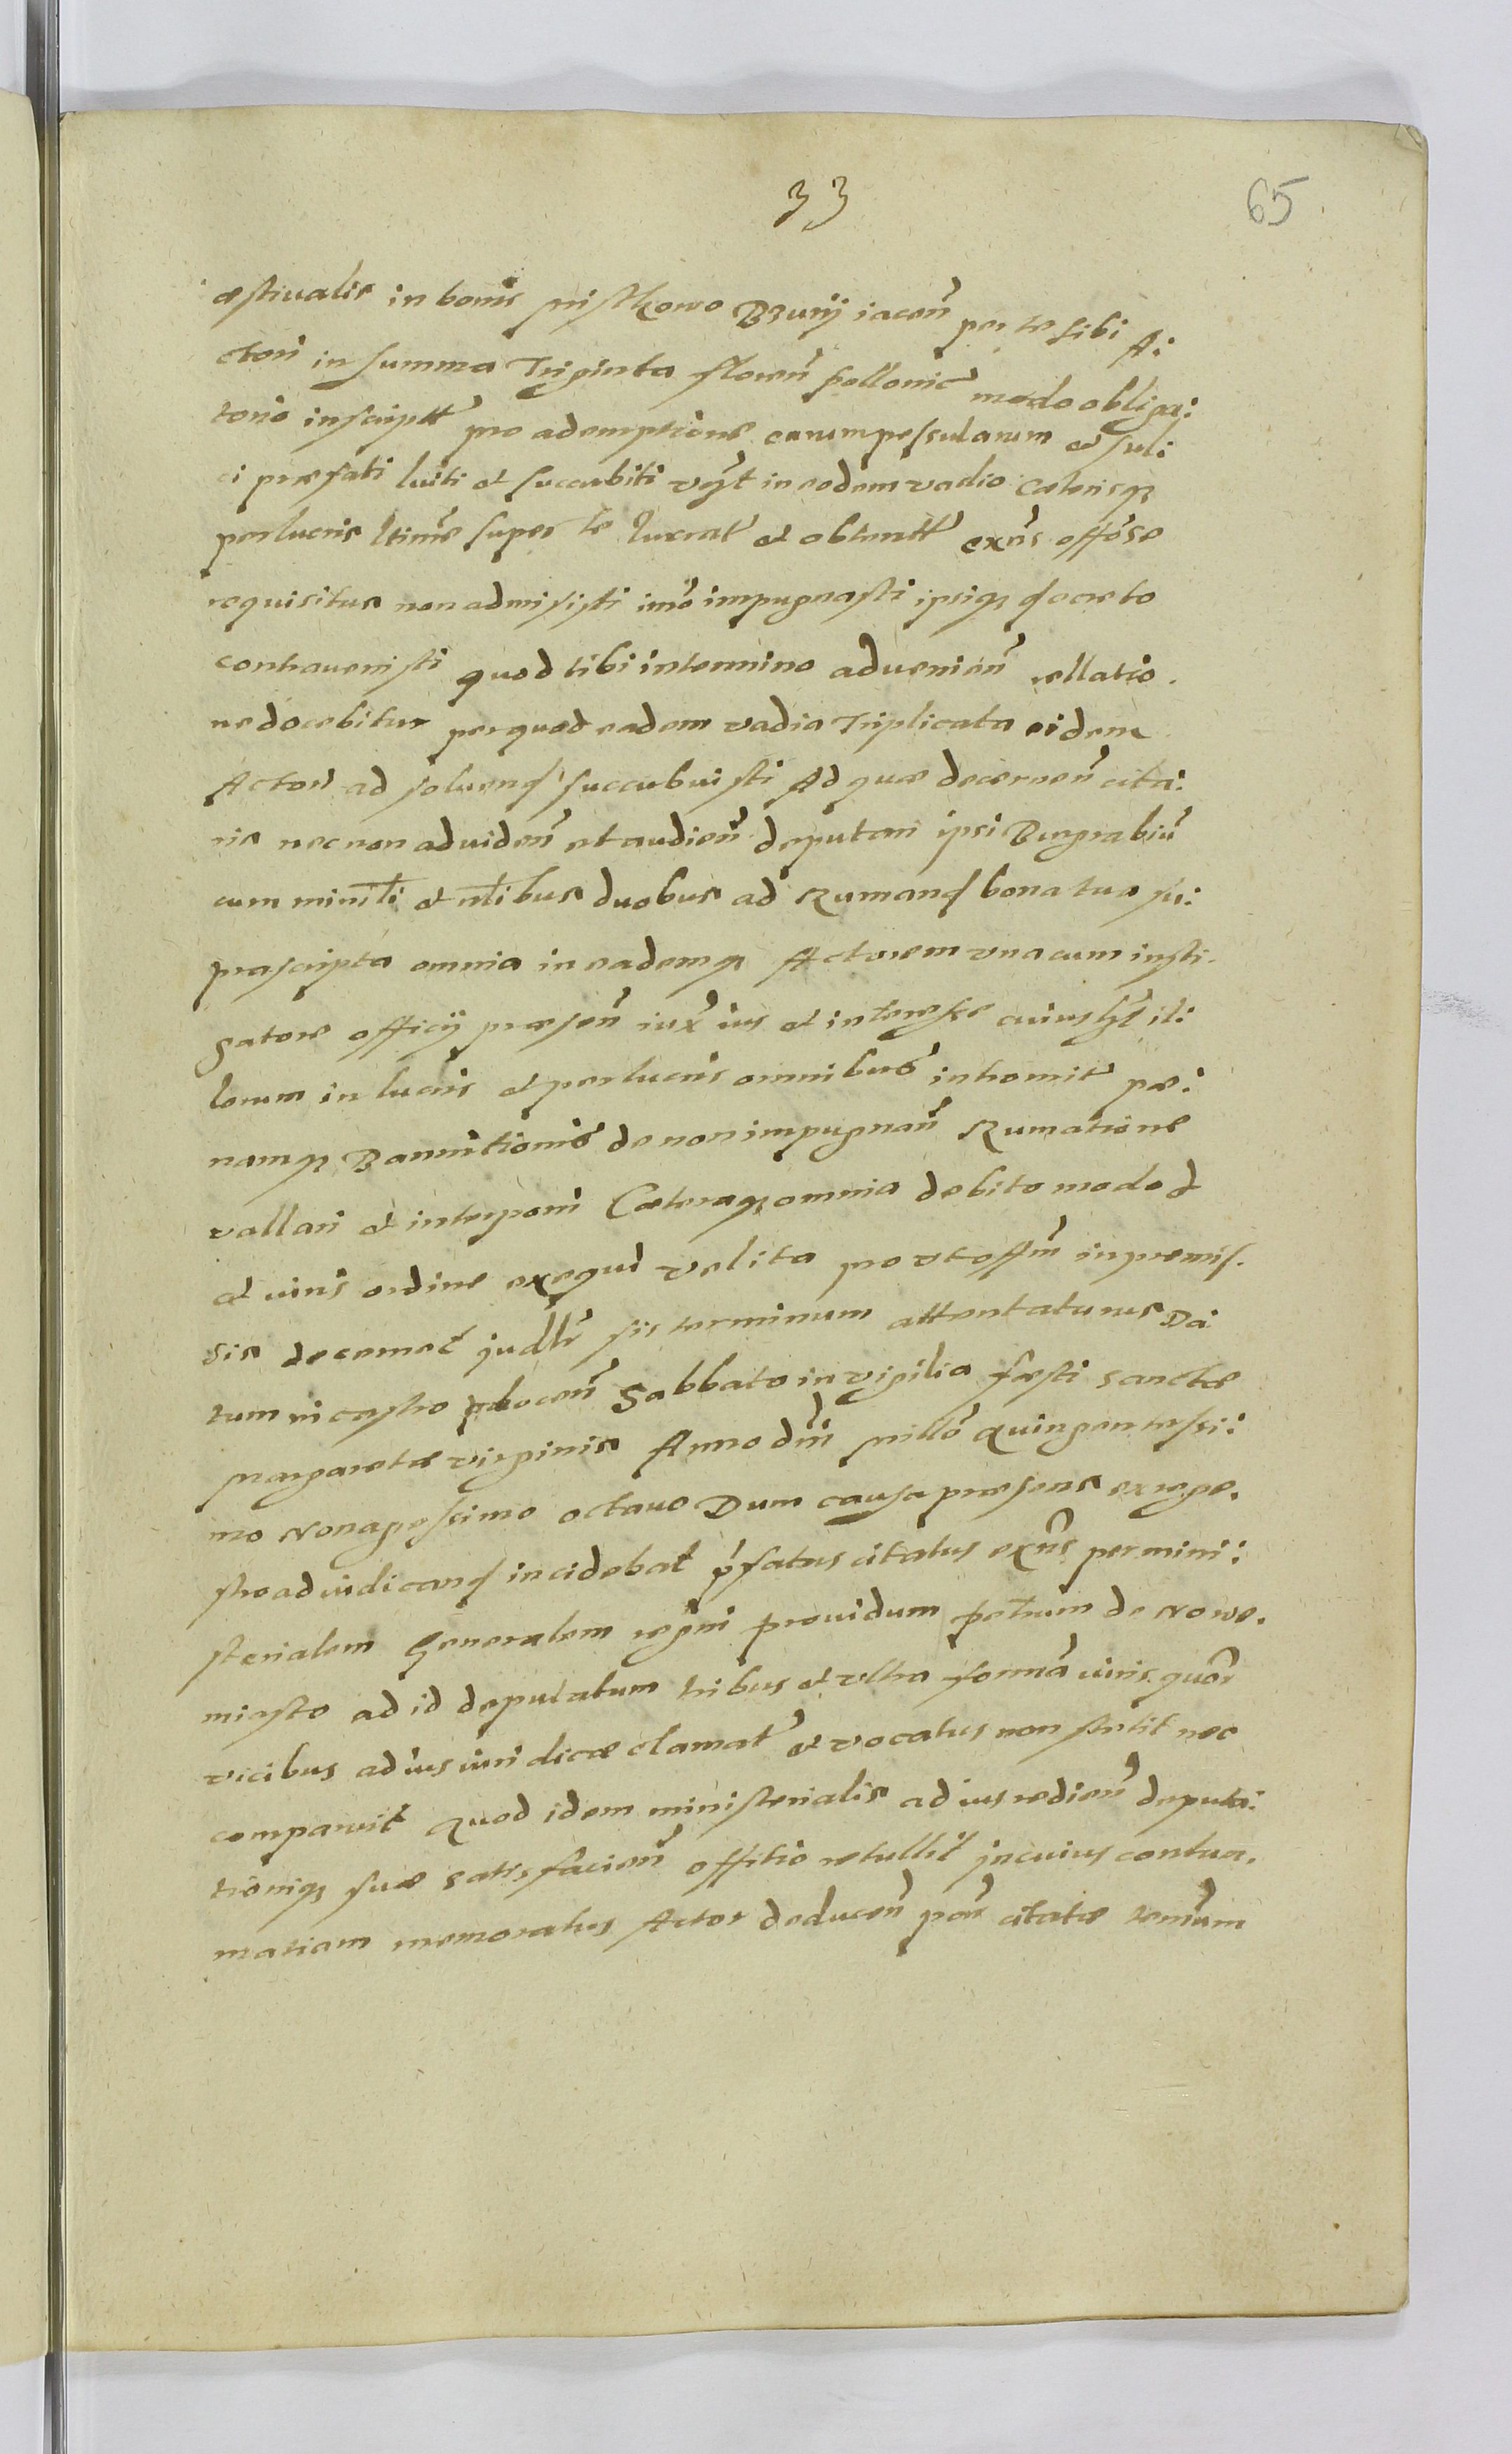 33
65
æstiualis in bonis Mistkowo Bruny iacen̄ per te sibi A:
ctori in summa Triginta floren̄ pollonic̄ modo obliga:
torio inscriptt̄ pro ademptione earum pessularum et suli
ci præfati luiti et succubiti vig̃t in eodem vadio cæterisq3
perlucris ltim̄e super te lucrat̄ et obtentt̄ exn̄s offōse
requisitus non admisisti imō impugnasti ipsiq3 decreto
contrauenisti quod tibi in termino aduenien̄ rellatio.
ne docebitur per quod eadem vadia Triplicata eidem
Actori ad soluend̄ succubuisti Ad quæ decernen̄ cita:
ris nec non ad viden̄ et audien̄ deputari ipsi Burgrabiū
cum minrl̄i et nl̄ibus duobus ad Rumand̄ bona tua su:
prascripta omnia in eademq3 Actorem vna cum insti.
gatore officij præsen̄ iux̄ ius et interesse cuiusl̄t il:
lorum in lucris et perlucris omnibus intromit̄ pæ:
namq3 Bannitionis de non impugnan̄ Rumatione
vallari et interponi Cæteraq3 omnia debito modo et
et iuris ordine exequi velita prout offm̄ in premis.
sis decernet judlr̄ sis terminum attentaturus Da
tum in castro plocen̄ Sabbato in vigilia fæsti sanctæ
Margaretæ virginis Anno dn̄i millō Quingentessi:
mo Nonagessimo octauo Dum causa præsens ex rege.
stro ad iudicand̄ incidebat p̄fatus citatus exn̄s per mini:
sterialem Generalem regni prouidum petrum de Nowe.
miasto ad id deputatum tribus et vltra formā iuris quōr
vicibus ad ius iuridicæ clamat̄ et vocatus non stetit nec
comparuit Quod idem ministerialis ad ius redien̄ deputa:
tioniq3 suæ satisfacien̄ offitio retullit jn cuius contu.
matiam memoratus Actor deducen̄ par̄ citatæ termūm